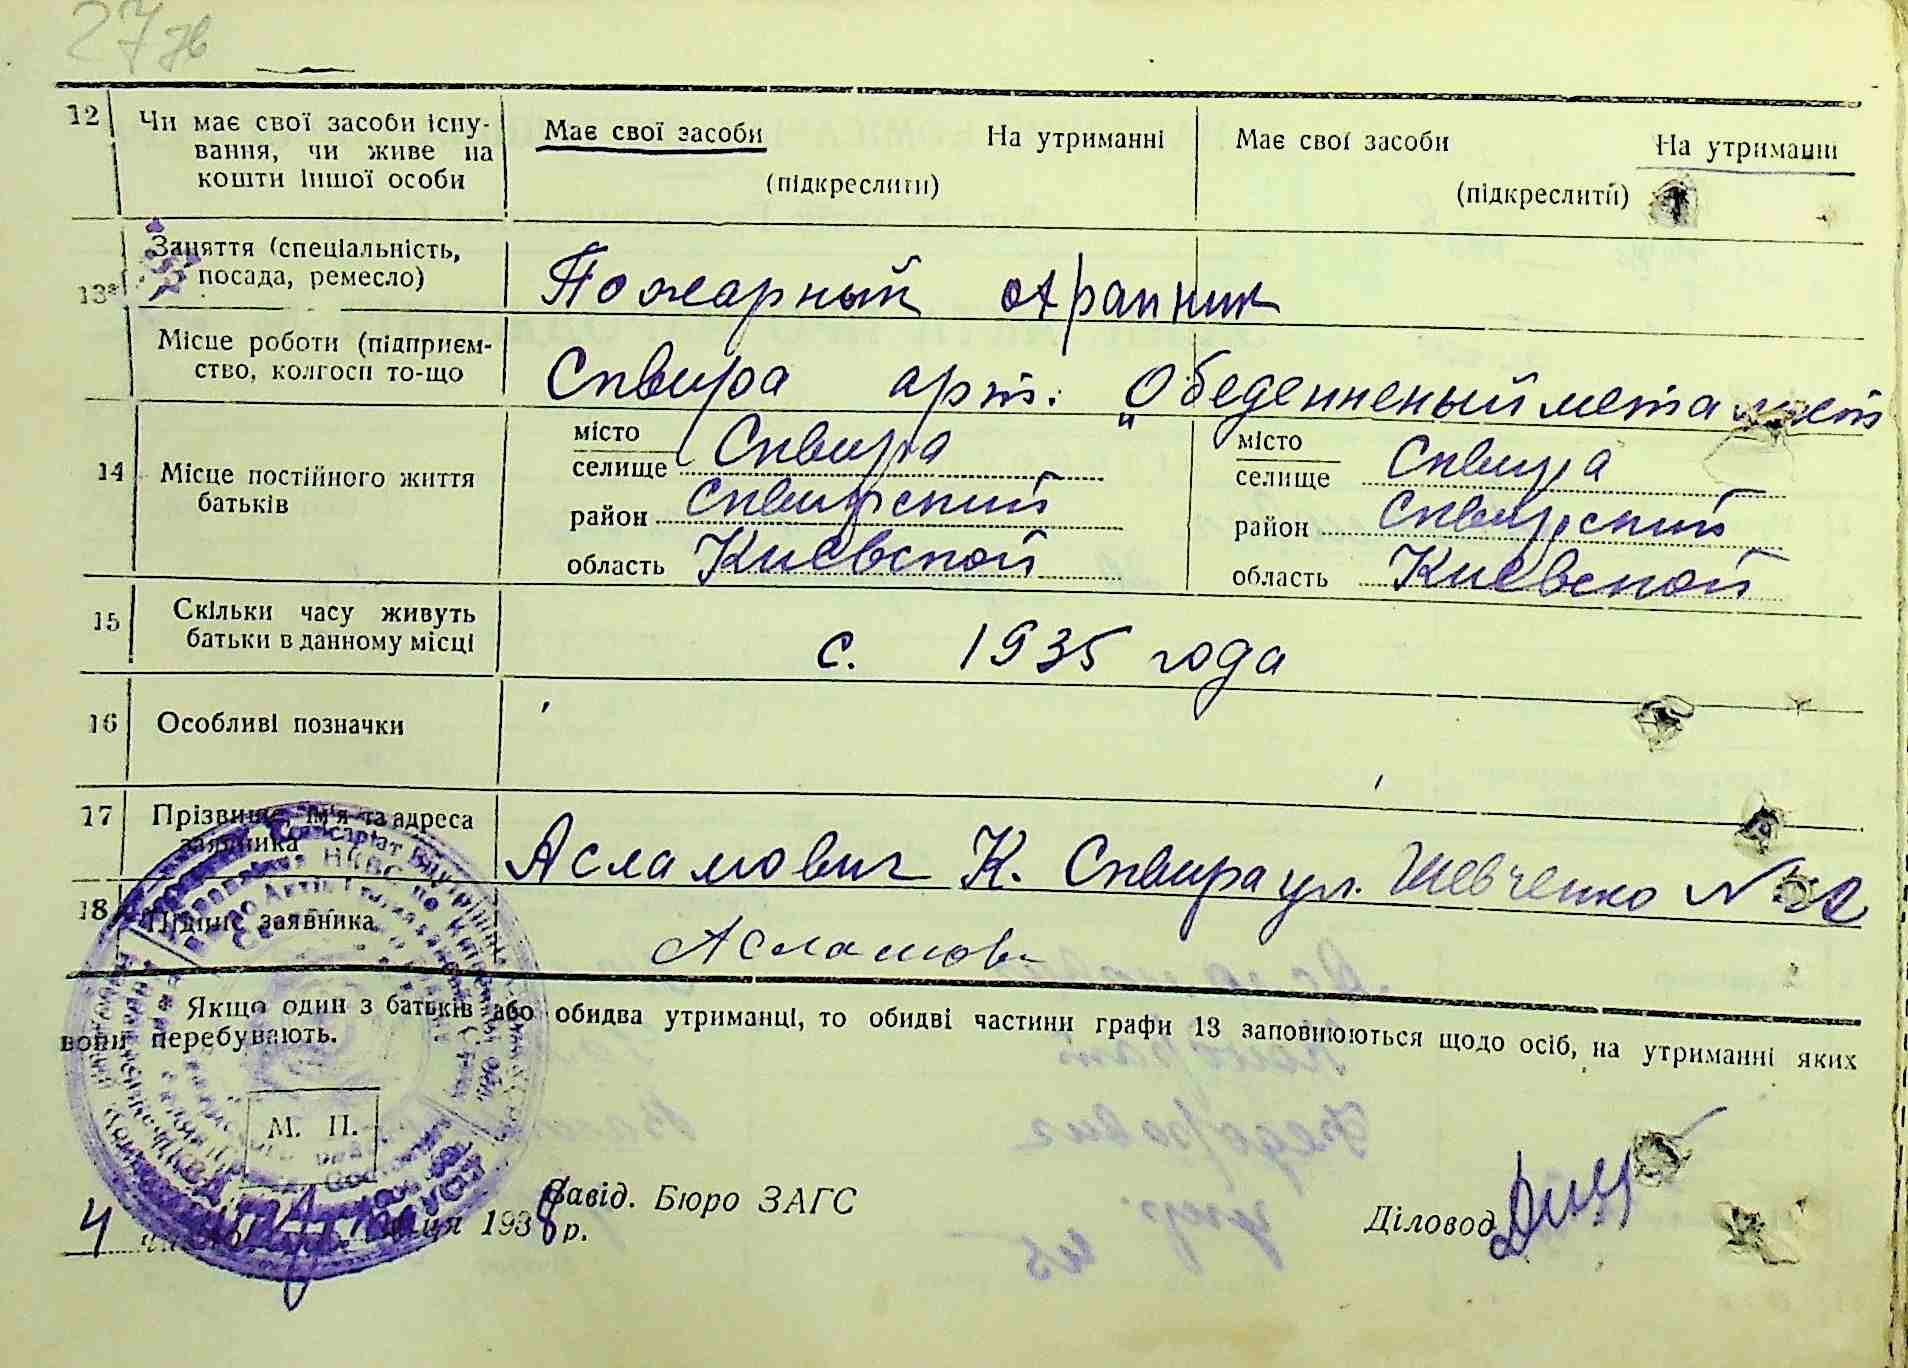 27 зв
12 Чи має свої засоби існу-
вання, чи живе на
кошти іншої особи
Має свої засоби На утриманні
(підкреслити)
Має свої засоби На утриманні
(підкреслити)
13 Заняття (спеціальність,
посада, ремесло)
Пожарный
Місце роботи (підприєм-
ство, колгосп то-що
Сквира арт. „Обеденненый металист
14 Місце постійного життя
батьків
місто
селище Сквира
район Сквирский
область Киевской
місто
селище Сквира
район Сквирский
область Киевской
15 Скільки часу живуть
батьки в данному місці
с. 1935 года
16 Особливі позначки
17 Прізвище, ім'я та адреса
заявника
Асламович К. Сквира ул. Шевченко №
18 Підпис заявника
Асламов
Якщо один з батьків або обидва утриманці, то обидві частини графи 13 заповнюються щодо осіб, на утриманні яких
вони перебувають.
М. П.
Завід. Бюро ЗАГС
4 193 р.
Діловод